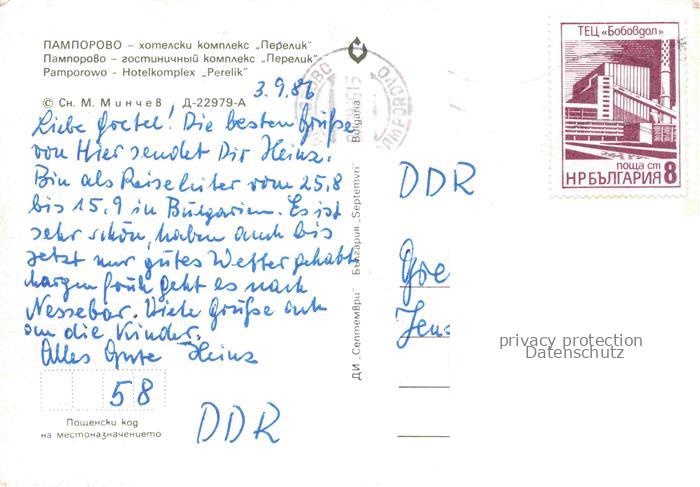 ПАМПОРОВО – хотелски комплекс „Перелик“
Пампорово – гостиничный комплекс „Перелик“
Pamporowo - Hotelkomplex „Perelik“
© Сн. М. Минчев Д-22979-А
3.9.86
Liebe Gretel! Die besten Grüße
von Hier sendet Dir Heinz.
Bin als Reiseleiter vom 25.8
bis 15.9 in Bulgarien. Es ist
sehr schön, haben auch bis
jetzt nur gutes Wetter gehabt
morgen früh geht es nach
Nessebar. Viele Grüße auch
an die Kinder.
Alles Gute Heinz
58
DDR
Пощенски код
на местоназначението
ДИ „Септември“ България „Septemvri“ Bulgaria
ТЕЦ „Бобовдол“
поща ст
НР БЪЛГАРИЯ 8
DDR
Jens
privacy protection
Datenschutz